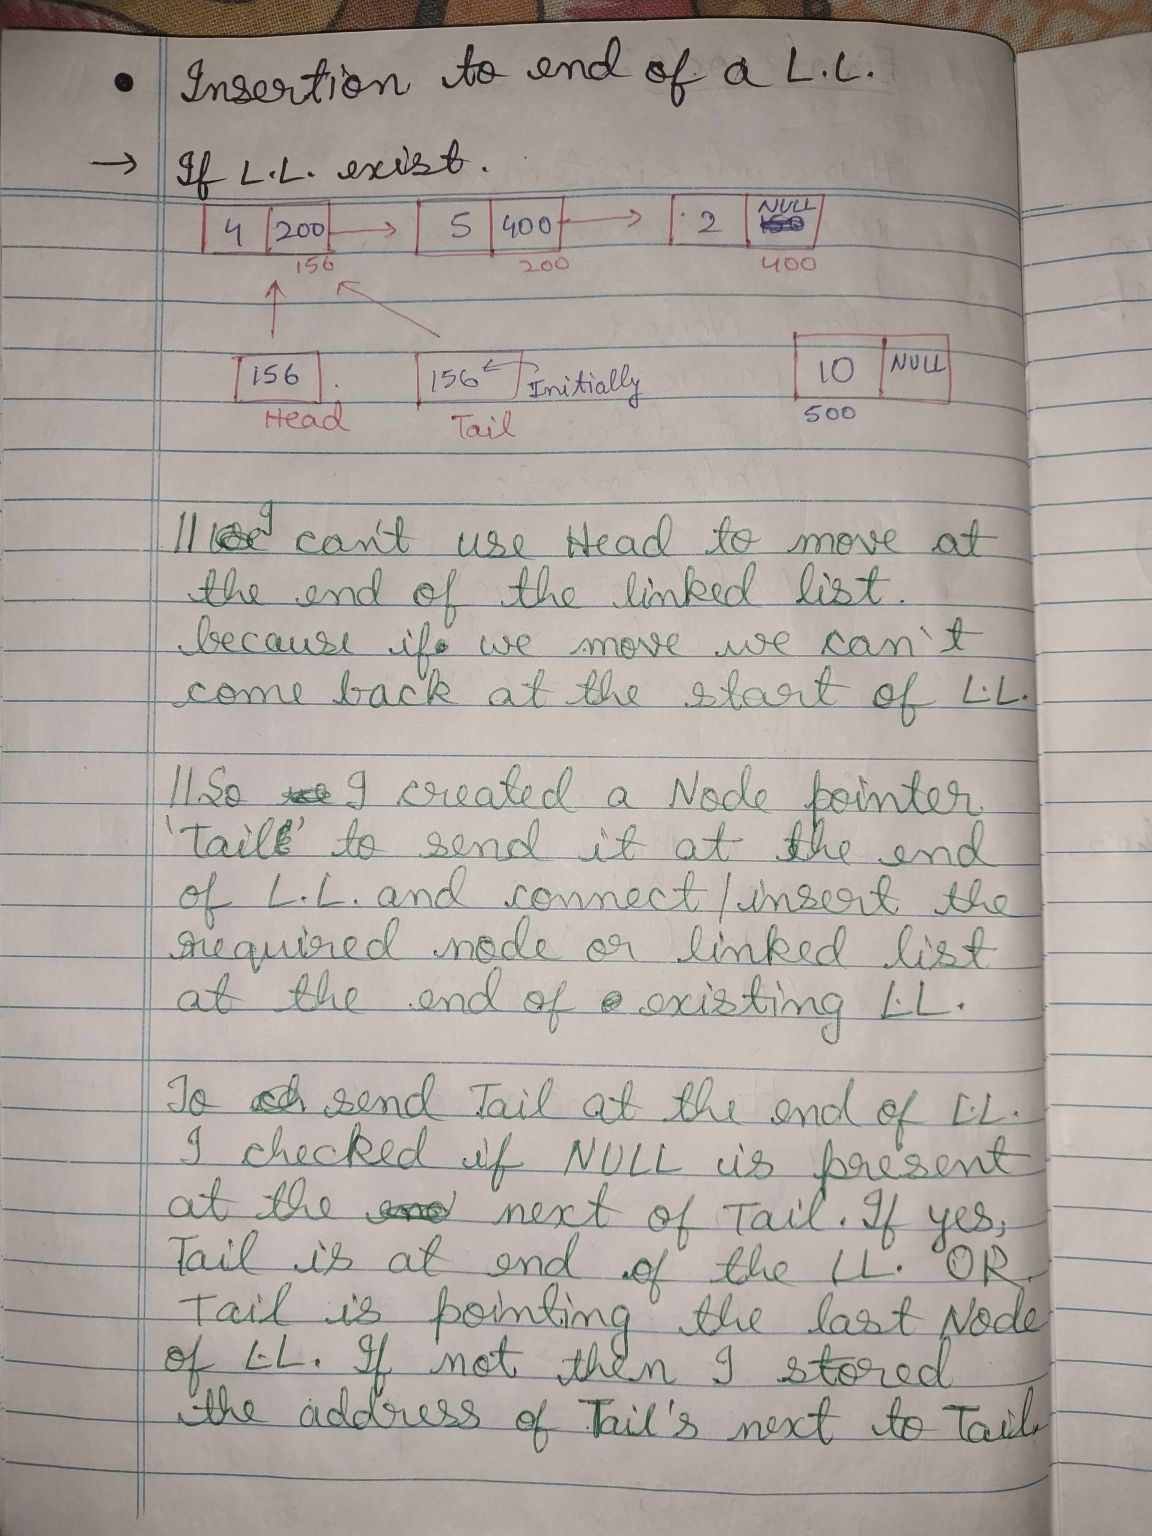 • Insertion to end of a L.L.
→ If L.L. exist.
4 200 → 5 400 → 2 NULL
156 200 400
156 156 Initially 10 NULL
Head Tail 500
// I can't use Head to move at
the end of the linked list.
because if we move we can't
come back at the start of L.L.
// So I created a Node pointer
'Tail' to send it at the end
of L.L. and connect / insert the
required node or linked list
at the end of existing L.L.
To send Tail at the end of L.L.
I checked if NULL is present
at the next of Tail. If yes,
Tail is at end of the LL. OR
Tail is pointing the last Node
of L.L. If not then I stored
the address of Tail's next to Tail.